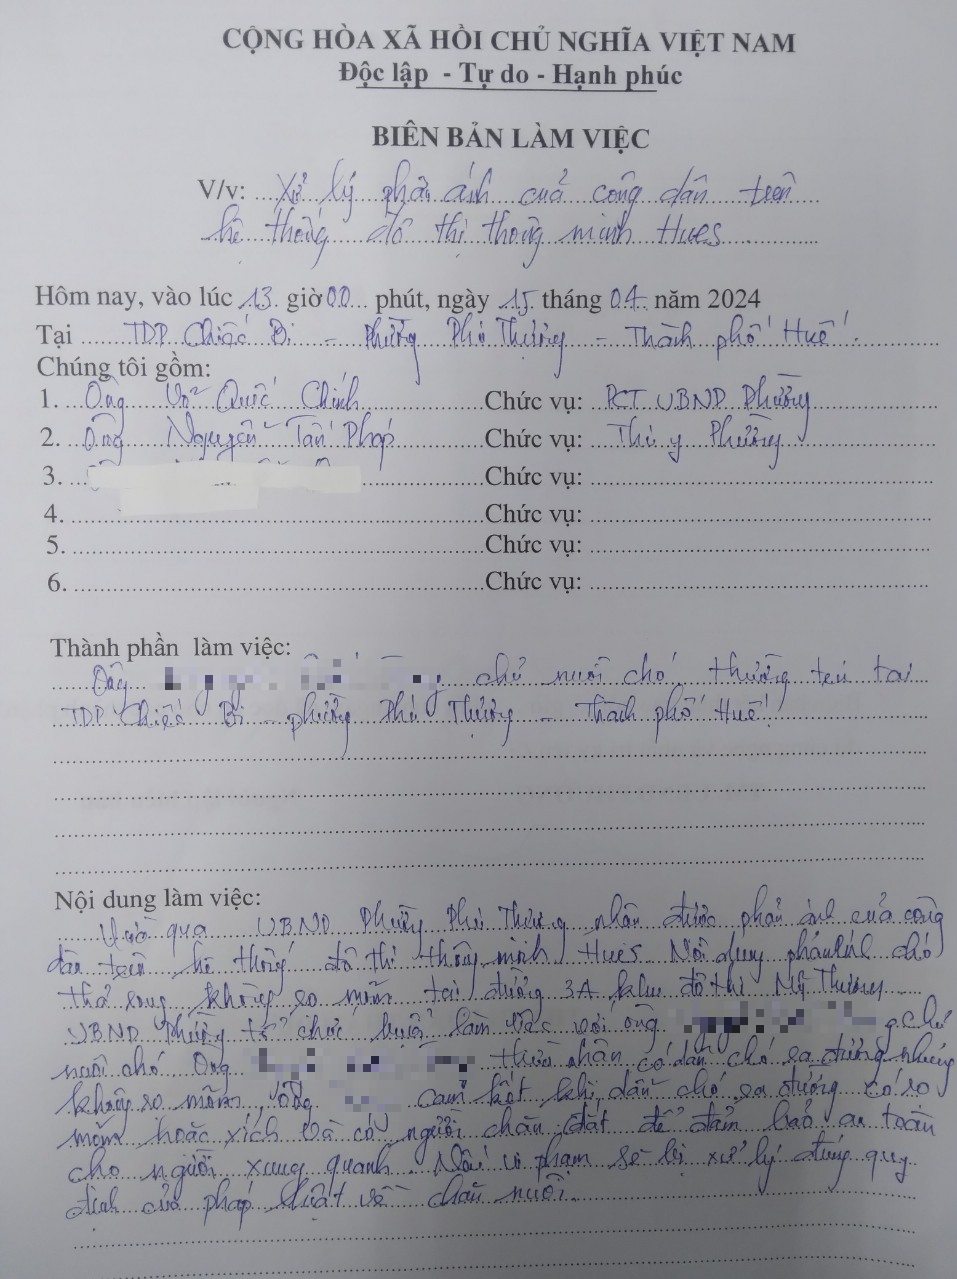 CỘNG HÒA XÃ HỒI CHỦ NGHĨA VIỆT NAM
Độc lập - Tự do - Hạnh phúc
BIÊN BẢN LÀM VIỆC
V/v: Xử lý phản ánh của công dân trên
hệ thống đô thị thông minh Hues
Hôm nay, vào lúc 13 giờ 00 phút, ngày 15 tháng 04 năm 2024
Tại TDP Chiếc Bi - Phường Phú Thượng - Thành phố Huế.
Chúng tôi gồm:
1. Ông Võ Quốc Chính Chức vụ: PCT UBND Phường
2. Ông Nguyễn Tấn Pháp Chức vụ: Thú y Phường
3. Chức vụ:
4. Chức vụ:
5. Chức vụ:
6. Chức vụ:
Thành phần làm việc:
Ông chủ nuôi chó thường trú tại
TDP Chiếc Bi - phường Phú Thượng - Thành phố Huế.
Nội dung làm việc:
Vừa qua UBND Phường Phú Thượng nhận được phản ánh của công
dân trên hệ thống đô thị thông minh Hues Nội dung phản ánh chó
thả rong không rọ mõm tại đường 3A khu đô thị Mỹ Thượng
UBND phường tổ chức buổi làm việc với ông chủ
nuôi chó Ông thừa nhận có dẫn chó ra đường nhưng
không rọ mõm, ông cam kết khi dẫn chó ra đường có rọ
mõm hoặc xích và có người chăn dắt để đảm bảo an toàn
cho người xung quanh. Nếu vi phạm sẽ bị xử lý đúng quy
định của pháp luật về chăn nuôi.